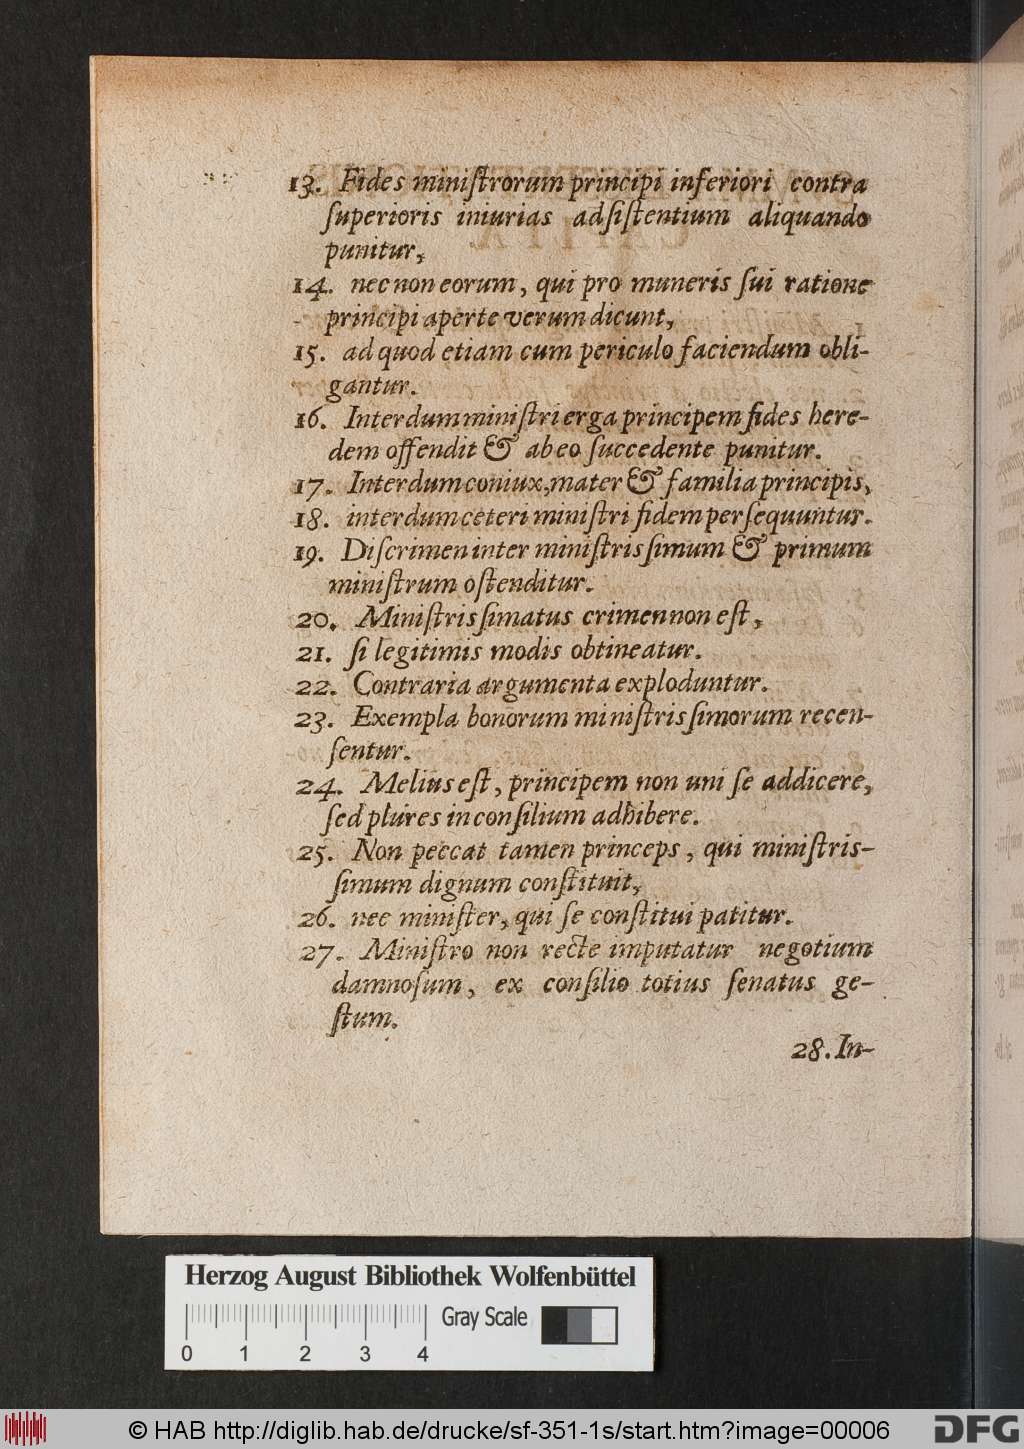 13. Fides miniſtrorum principi inferiori contra
ſuperioris iniurias adſiſtentium aliquando
punitur,
14. nec non eorum, qui pro muneris ſui ratione
principi aperte verum dicunt,
15. ad quod etiam cum periculo faciendum obli-
gantur.
16. Interdum miniſtri erga principem fides here-
dem offendit & ab eo ſuccedente punitur.
17. Interdum coniux, mater & familia principis,
18. interdum ceteri miniſtri fidem perſequuntur.
19. Diſcrimen inter miniſtrisſimum & primum
miniſtrum oſtenditur.
20. Miniſtrisſimatus crimen non eſt,
21. ſi legitimis modis obtineatur.
22. Contraria argumenta exploduntur.
23. Exempla bonorum miniſtrisſimorum recen-
ſentur.
24. Melius eſt, principem non uni ſe addicere,
ſed plures in conſilium adhibere.
25. Non peccat tamen princeps, qui miniſtris-
ſimum dignum conſtituit,
26. nec miniſter, qui ſe conſtitui patitur.
27. Miniſtro non recte imputatur negotium
damnoſum, ex conſilio totius ſenatus ge-
ſtum.
28. In-
Herzog August Bibliothek Wolfenbüttel
Gray Scale
0 1 2 3 4
© HAB http://diglib.hab.de/drucke/sf-351-1s/start.htm?image=00006
DFG